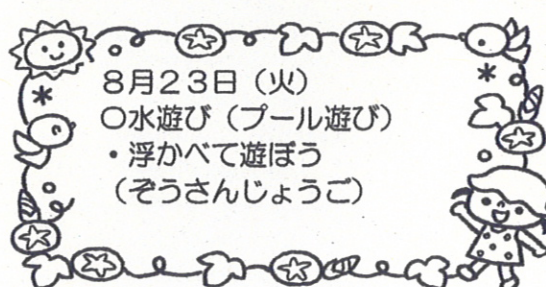 ８月２３日（火）
〇水遊び（プール遊び）
・浮かべて遊ぼう
（ぞうさんじょうご）